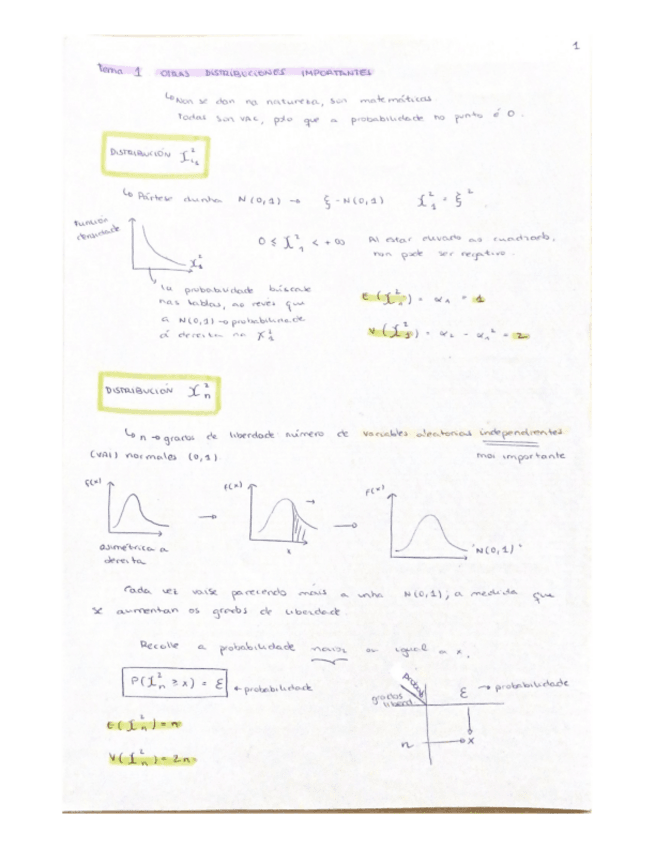 1
Tema 1 OTRAS DISTRIBUCIONES IMPORTANTES
↳ Non se dan na natureza, son matemáticas.
Todas son VAC, polo que a probabilidade no punto é 0.
DISTRIBUCIÓN χ²₁
↳ Pártese dunha N(0,1) → ξ - N(0,1) χ²₁ = ξ²
Función densidade
χ²₁
0 ≤ χ²₁ < +∞ Al estar elevado ao cuadrado,
non pode ser negativo.
La probabilidade búscase
nas tablas, ao revés que
a N(0,1) → probabilidade
á dereita na χ²₁
E(χ²₁) = α₁ = 1
V(χ²₁) = α₂ - α₁² = 2
DISTRIBUCIÓN χ²n
↳ n → grados de liberdade número de variables aleatorias independientes
(VAI) normales (0,1). moi importante
f(x) → f(x) x → f(x) "N(0,1)"
asimétrica a
dereita
Cada vez vaise parecendo máis a unha N(0,1); a medida que
se aumentan os grados de liberdade.
Recolle a probabilidade maior ou igual a x.
P(χ²n ≥ x) = ε ← probabilidade
E(χ²n) = n
V(χ²n) = 2n
grados liberd.
ε → probabilidade
n → x